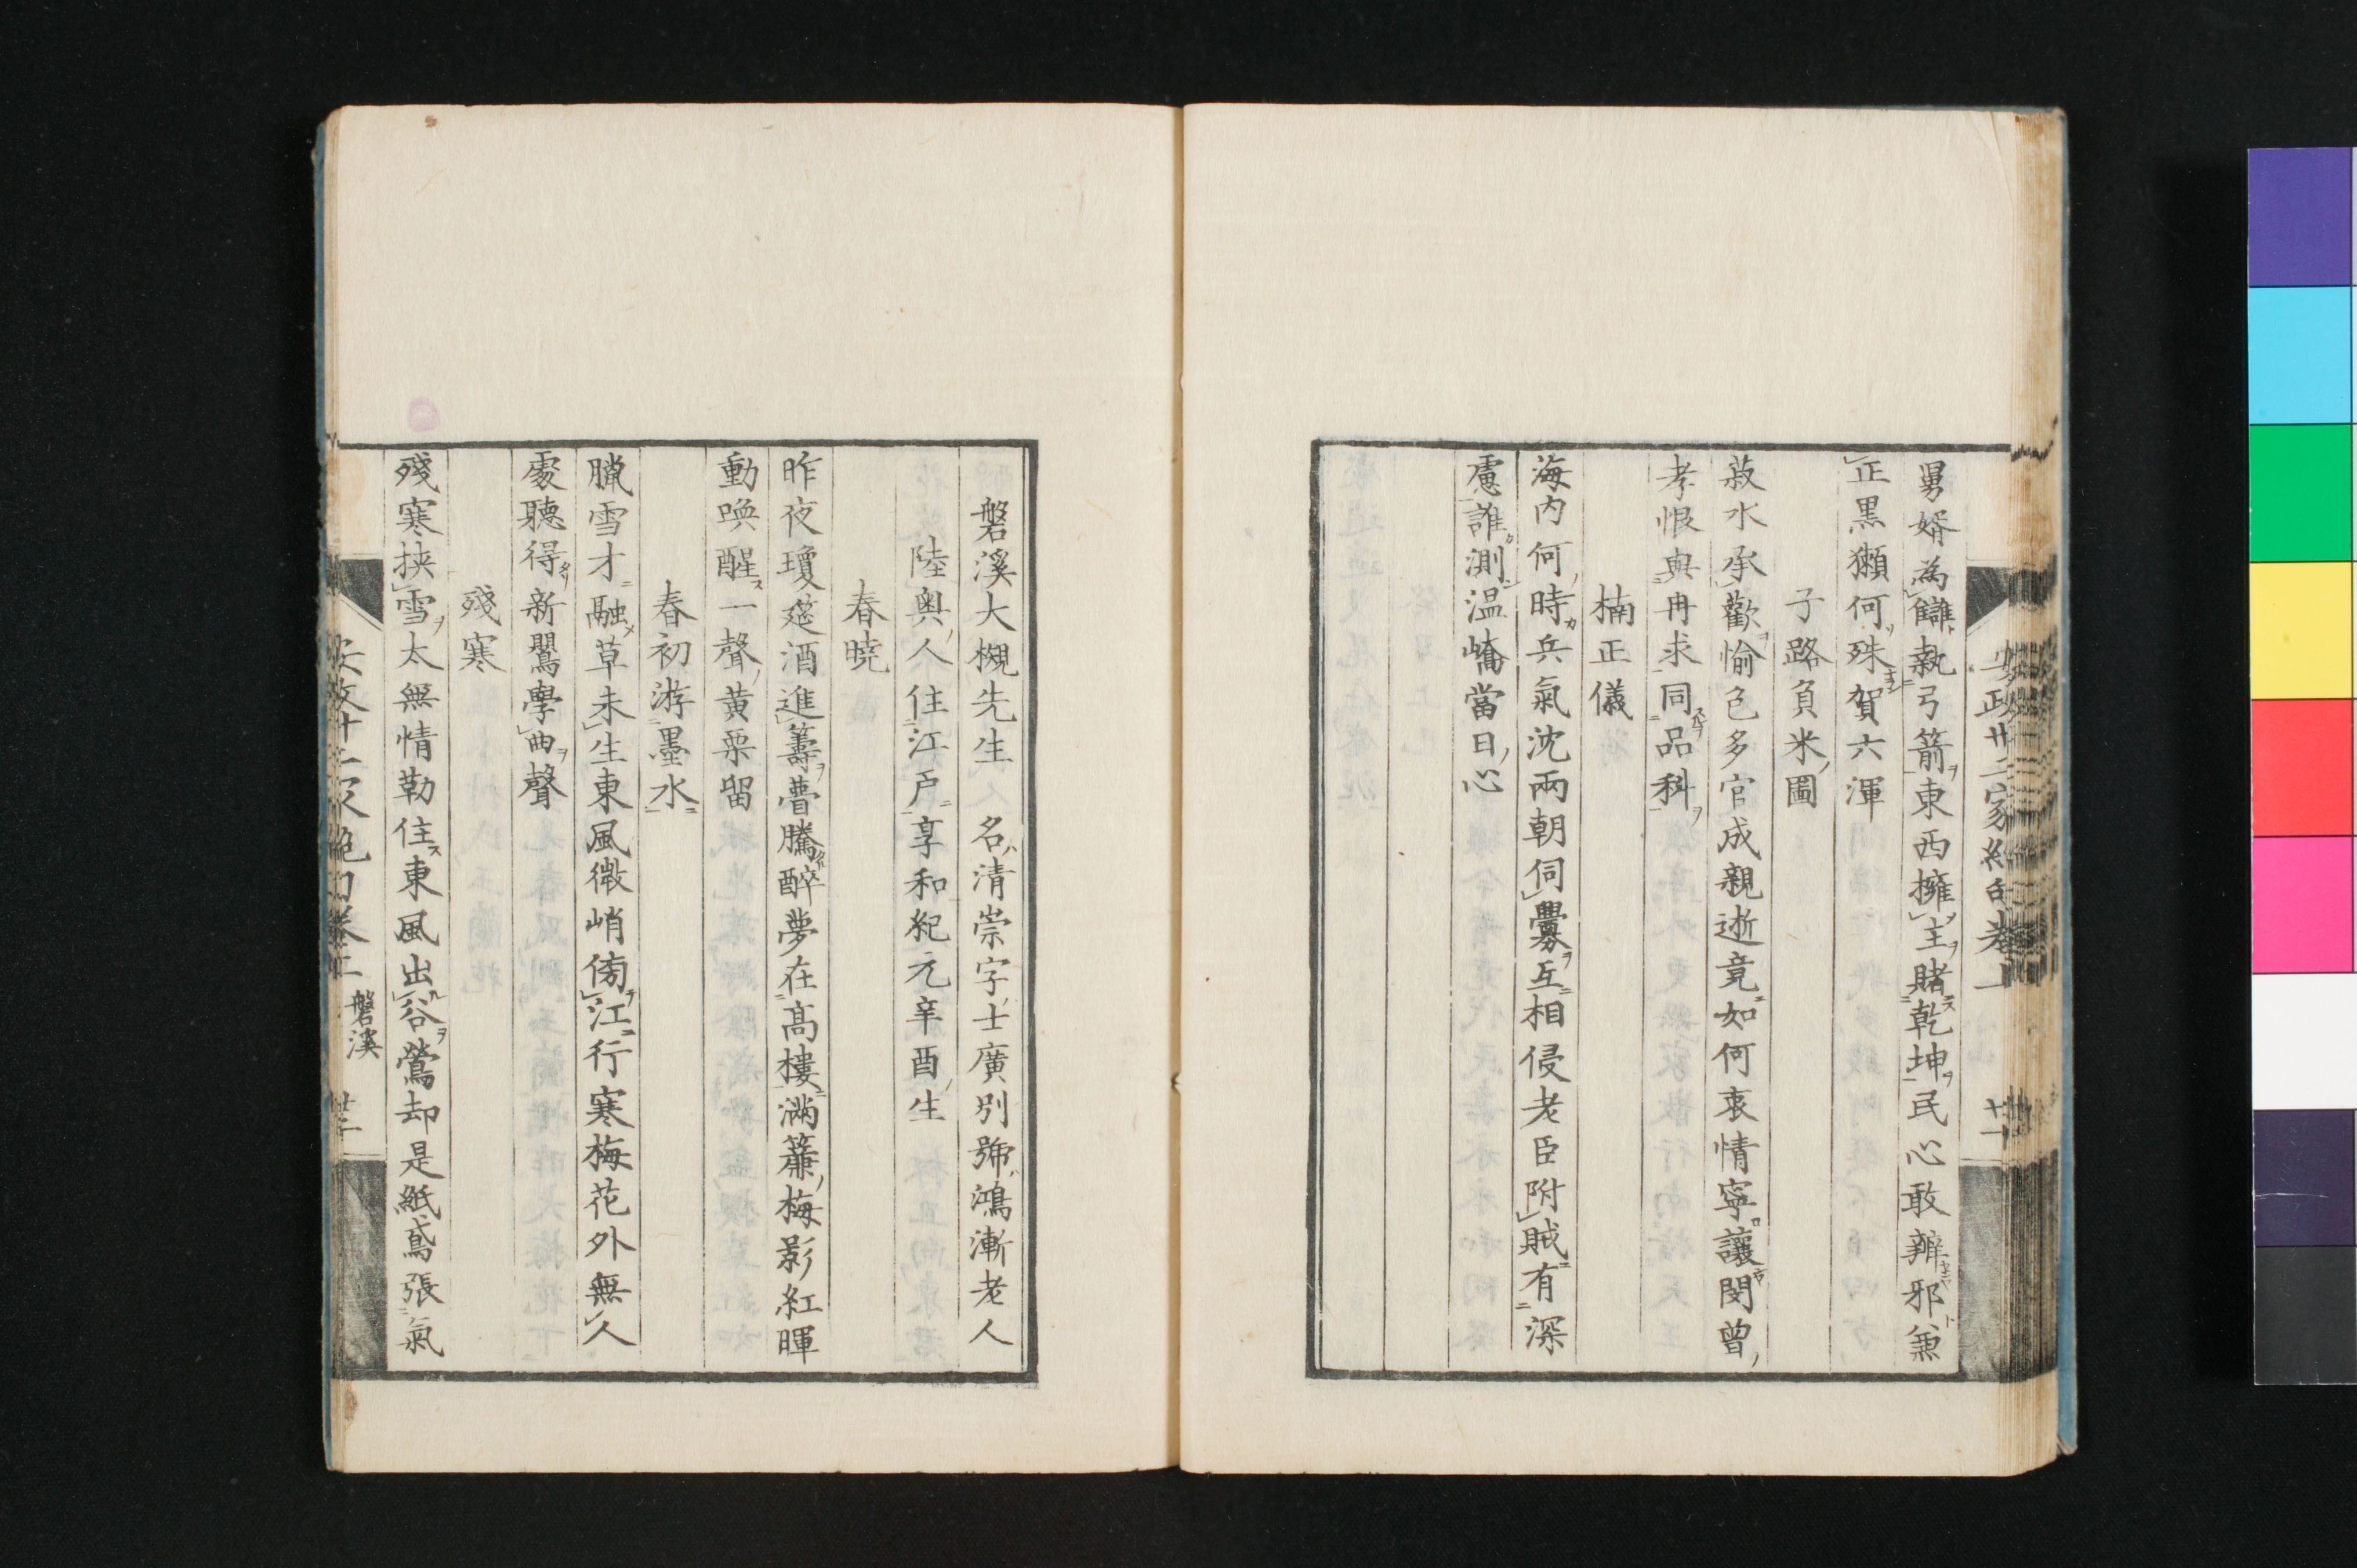 舅婿為讎執弓箭東西擁主賭乾坤民心敢辨邪兼
正黒獺何殊賀六渾
子路負米圖
菽水承歡愉色多官成親逝竟如何衷情寧讓閔曽
孝恨與冉求同品科
楠正儀
海内何時兵氣沈兩朝伺釁互相侵老臣附賊有深
慮誰測温嶠當日心
磐溪大槻先生　名清崇字士廣別號鴻漸老人
陸奥人住江戸享和紀元辛酉生
春曉
昨夜瓊筵酒進籌瞢騰醉夢在高樓滿簾梅影紅暉
動喚醒一聲黄栗留
春初游墨水
臘雪才融草未生東風微峭傍江行寒梅花外無人
處聽得新鸎學曲聲
殘寒
殘寒挾雪太無情勒住東風出谷鶯却是紙鳶張氣
安政廿二家絶句卷二　磐溪